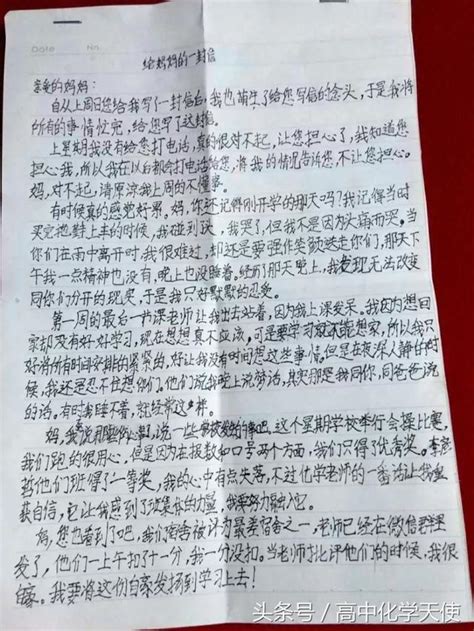 Date No.
给妈妈的一封信
亲爱的妈妈：
自从上周日您给我写了一封信后，我也萌生了给您写信的念头，于是我将
所有的事情忙完，给您写了这封信。
上星期我没有给您打电话，真的很对不起，让您担心了，我知道您
担心我，所以我在以后都会打电话给您，将我的情况告诉您，不让您担心。
妈，对不起，请原谅我上周的不懂事。
有时候真的感觉好累。妈，你还记得刚开学的那天吗？我记得当时
买完地鞋上去的时候，我碰到床，我哭了，但我不是因为头痛而哭。当
你们在雨中离开时，我很难过，却还是要强作笑颜送走你们，那天下
午我一点精神也没有，晚上也没睡着，经历了那天晚上，我发现无法改变
同你们分开的现实，于是我只好默默的忍受。
第一周的最后一节课老师让我出去站着，因为我上课发呆。我因为想回
家却没有好好学习，现在想想真不应该，可是要学习就不能想家，所以我只
好将所有时间安排的紧紧的，好让我没有时间想这些事情，但是在夜深人静的时
候，我还是忍不住想你们。他们说我晚上说梦话，其实那是我同你，同爸爸说
的话，有时我睡不着，就经常这样。
妈，我说那些伤心事，说一些学校发生的事吧，这个星期学校举行会操比赛，
我们跑的很用心，但是因为在拔数和口号两个方面，我们只得了优秀奖。李
哲他们班得了一等奖，我的心中有点失落，不过化学老师的一番话让我重
获自信，它让我感到了班集体的力量，我要努力融入它。
妈，您也看到了吧，我们宿舍被评为最美宿舍之一，老师已经在微信群里
发了，他们一上午扣了十一分，我一分没扣。当老师批评他们的时候，我很
自豪。我要将这份自豪发扬到学习上去！
头条号 / 高中化学天使